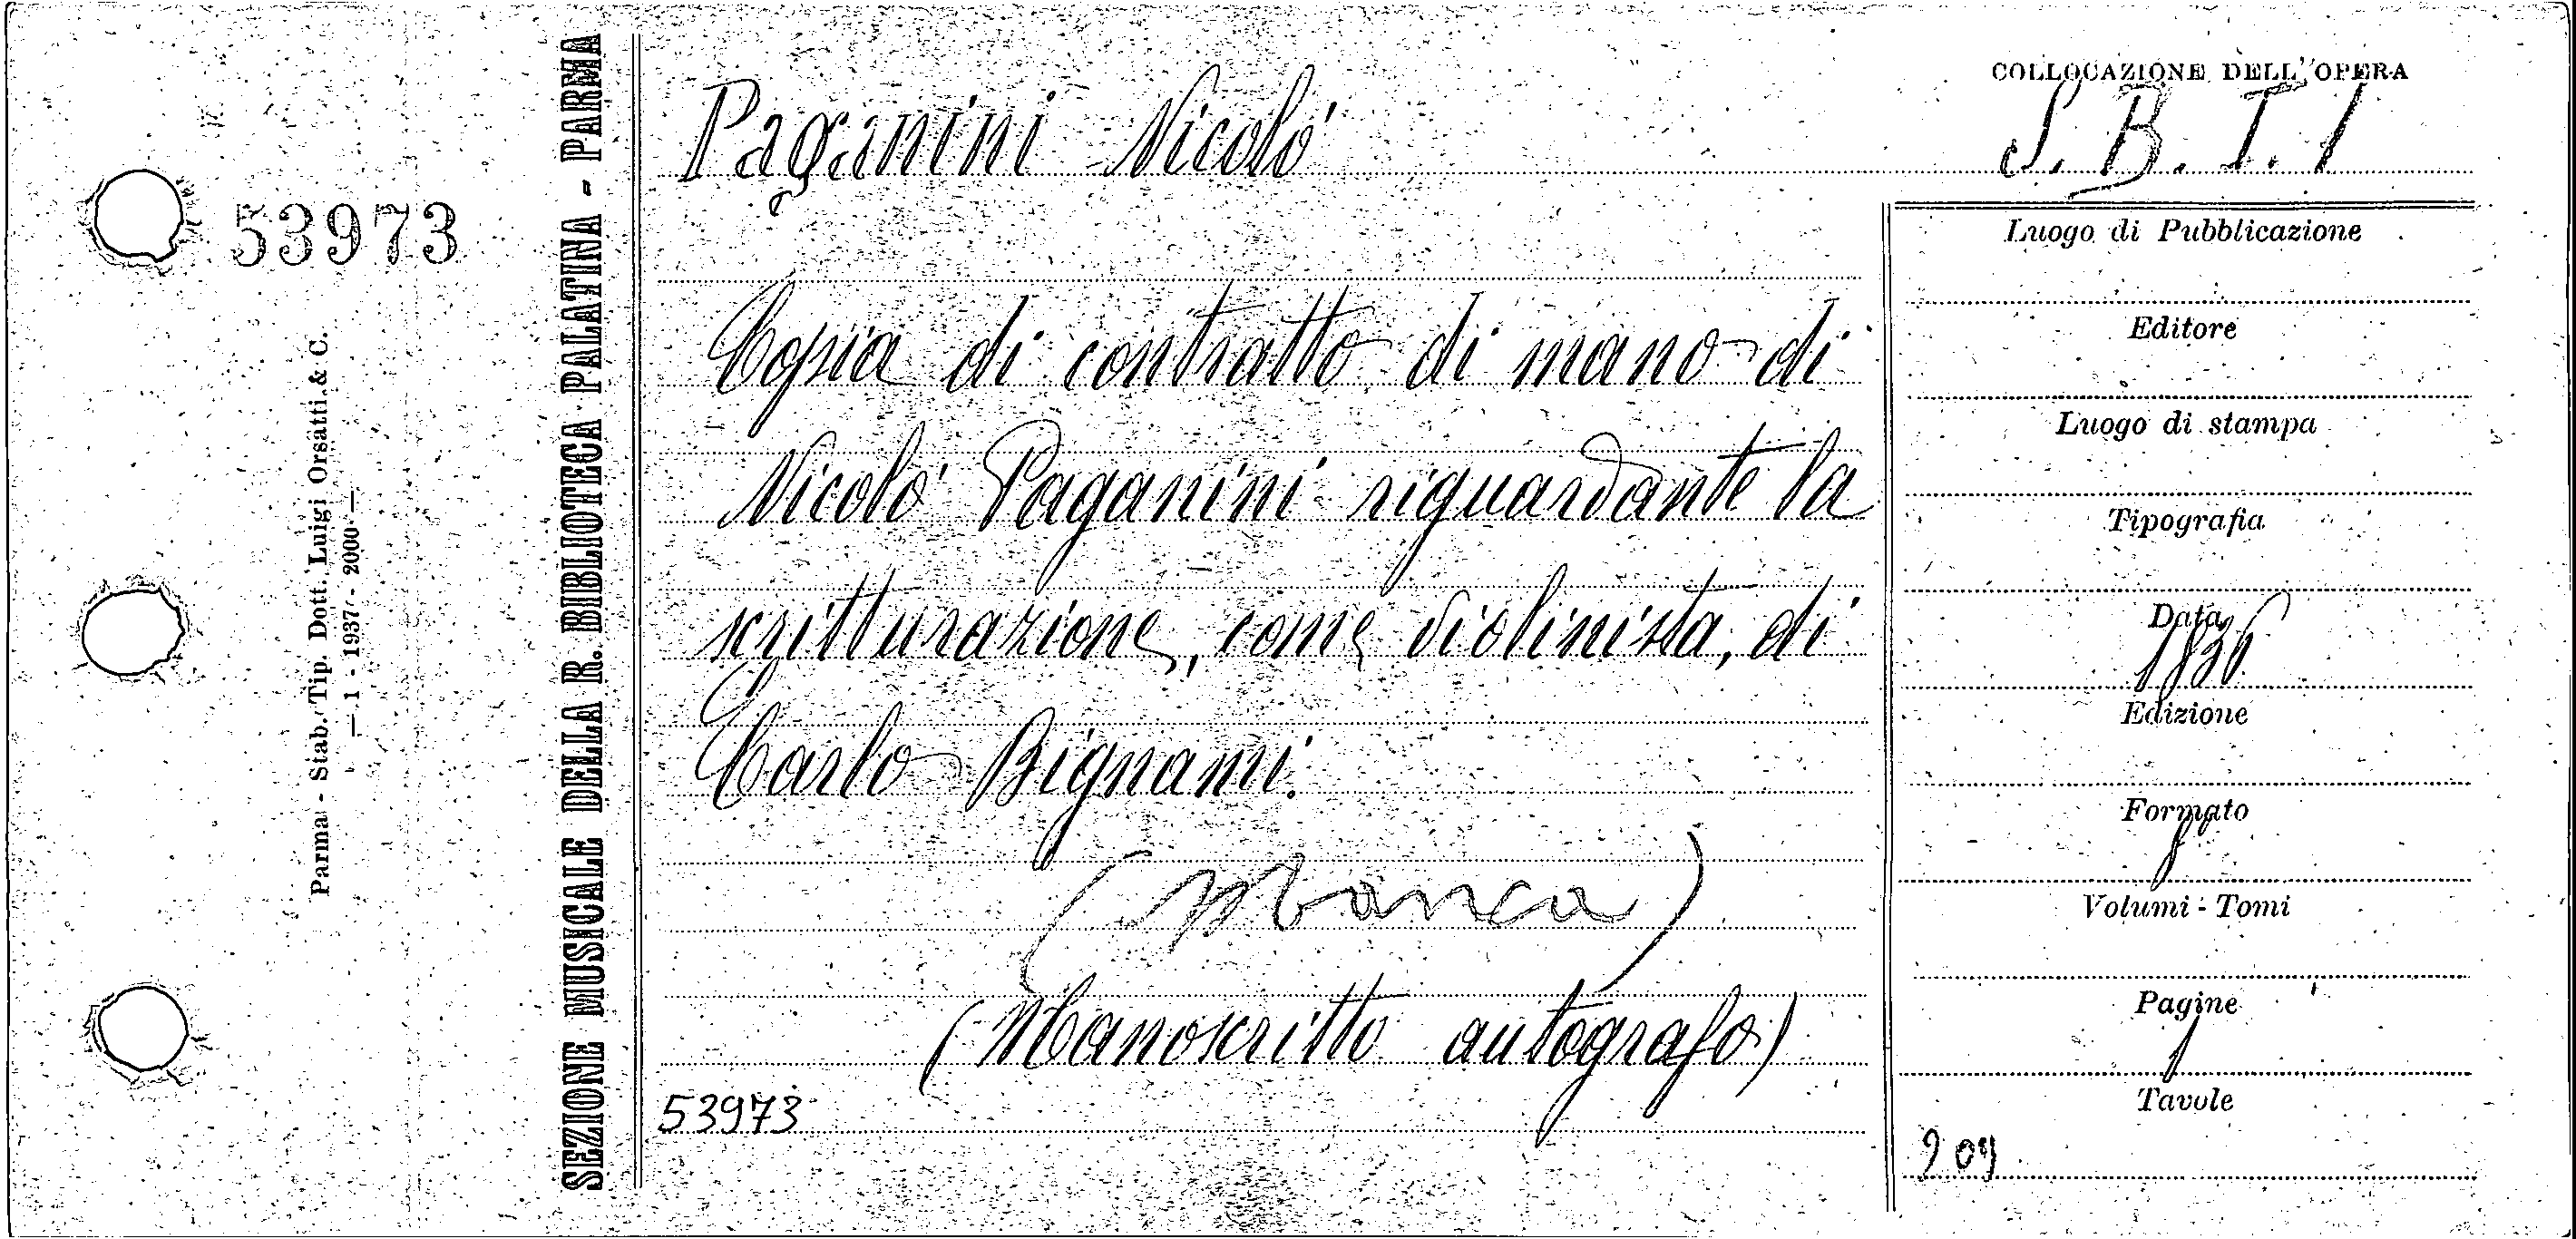 COLLOCAZIONE DELL'OPERA
Paganini Nicolò
S. B. T. 1
53973
SEZIONE MUSICALE DELLA R. BIBLIOTECA PALATINA - PARMA
Parma - Stab. Tip. Dott. Luigi Orsatti & C.
— 1 - 1937 - 2000 —
Copia di contratto di mano di
Nicolò Paganini riguardante la
scritturazione, come violinista, di
Carlo Bignami.
(Manca)
(Manoscritto autografo)
53973
Luogo di Pubblicazione
Editore
Luogo di stampa
Tipografia
Data
1836
Edizione
Formato
Volumi - Tomi
Pagine
1
Tavole
209